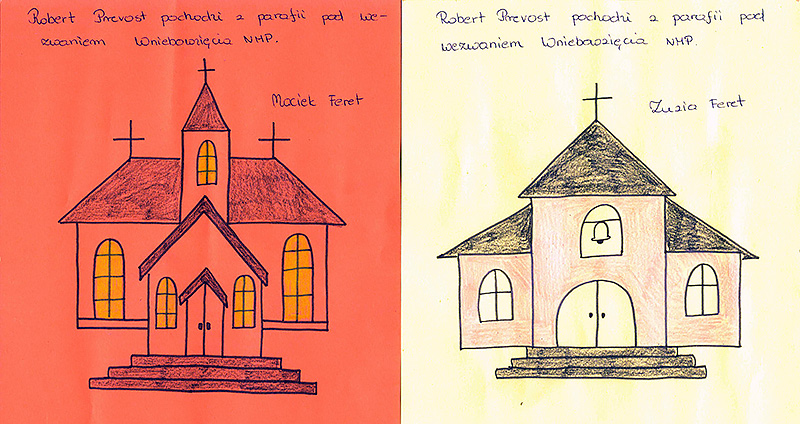 Robert Prevost pochodzi z parafii pod we-
zwaniem Wniebowzięcia NMP.
Maciek Feret
Robert Prevost pochodzi z parafii pod
wezwaniem Wniebowzięcia NMP.
Zuzia Feret